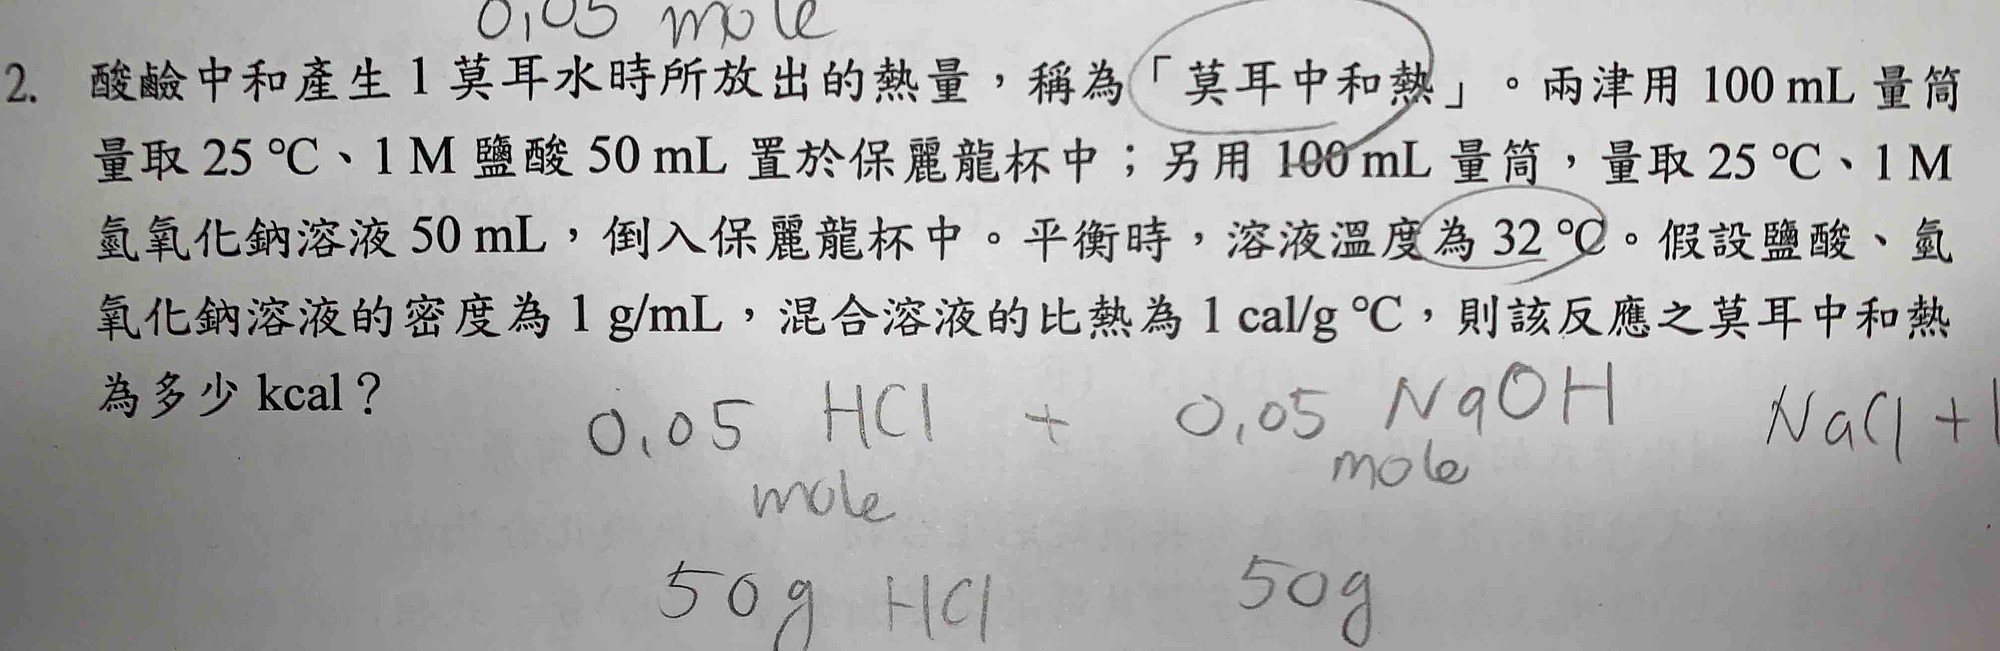 0.05 mole
2. 酸鹼中和產生 1 莫耳水時所放出的熱量，稱為「莫耳中和熱」。兩津用 100 mL 量筒
量取 25 ℃、1 M 鹽酸 50 mL 置於保麗龍杯中；另用 100 mL 量筒，量取 25 ℃、1 M
氫氧化鈉溶液 50 mL，倒入保麗龍杯中。平衡時，溶液溫度為 32 ℃。假設鹽酸、氫
氧化鈉溶液的密度為 1 g/mL，混合溶液的比熱為 1 cal/g ℃，則該反應之莫耳中和熱
為多少 kcal？
0.05 HCl + 0.05 NaOH NaCl +
mole mole
50g HCl 50g